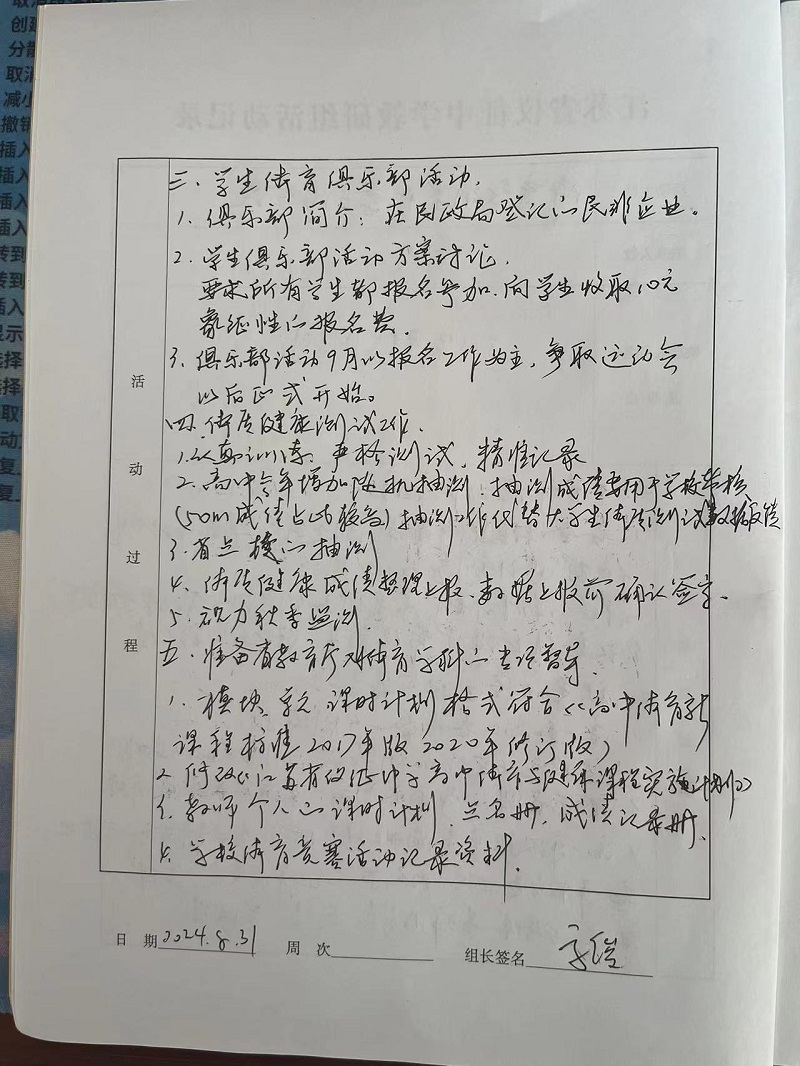 三、学生体育俱乐部活动.
1. 俱乐部简介：在民政局登记的民非企业。
2. 学生俱乐部活动方案讨论.
要求所有学生都报名参加.向学生收取10元
象征性的报名费.
3. 俱乐部活动9月以报名工作为主，争取运动会
以后正式开始。
四.体质健康测试工作.
1.认真训练、严格测试、精准记录
2.高中今年增加随机抽测.抽测成绩要用于学校考核
(50m成绩占比较高)抽测工作代替大学生体质测试数据反馈
3.省三模的抽测
4. 体质健康成绩整理上报、数据上报前确认签字.
5. 视力秋季监测.
五.准备省教育厅对体育学科的专项督导.
1. 模块、单元、课时计划格式符合《高中体育新
课程标准2017年版2020年修订版》
2.修改《江苏省仪征中学高中体育与健康课程实施计划》
3. 教师个人的课时计划.点名册.成绩记录册.
4. 学校体育竞赛活动记录资料.
活动过程
日 期 2024.8.31 周 次 组长签名